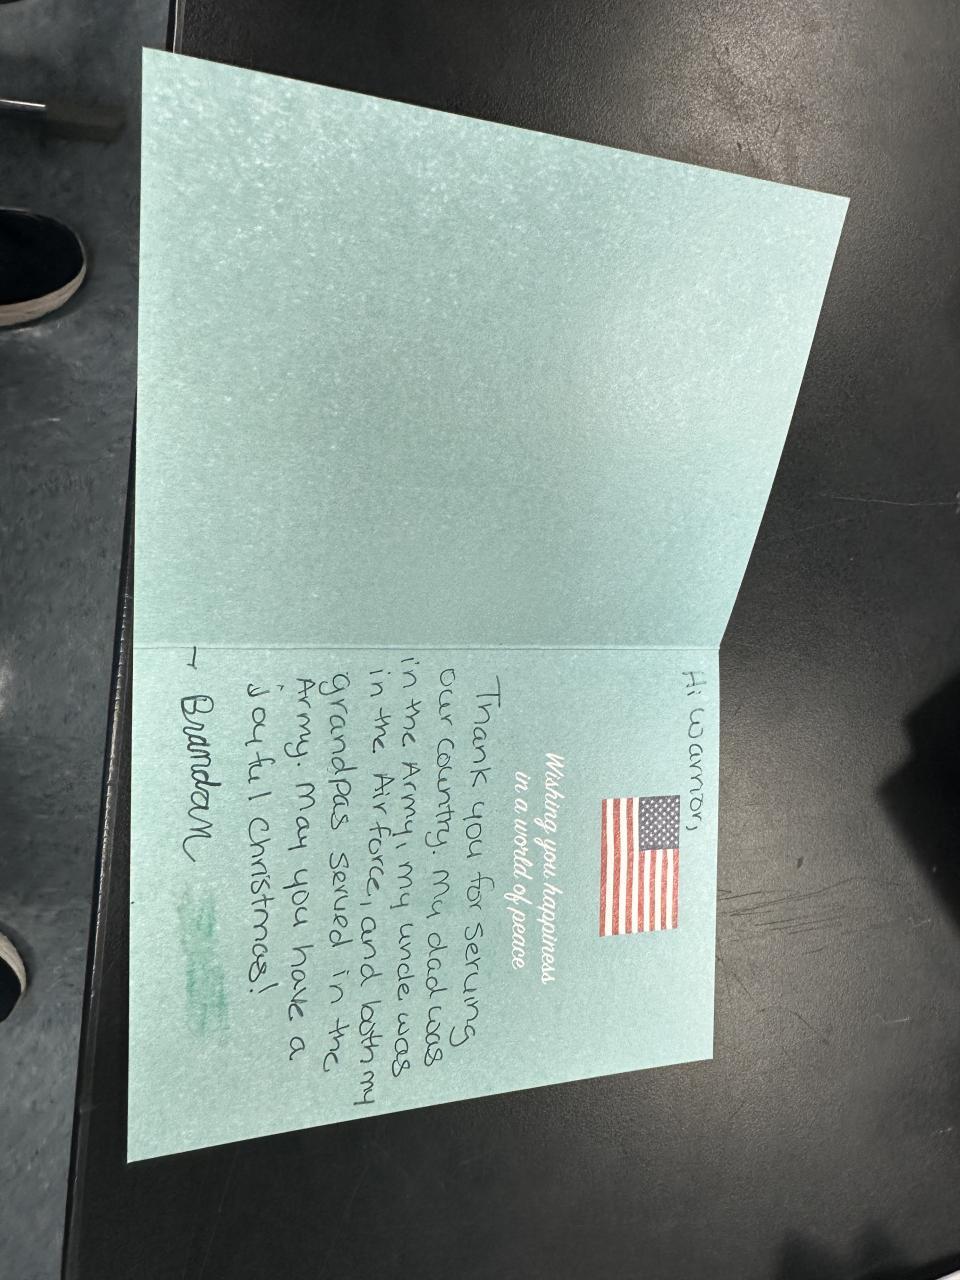 Hi Warrior,
Wishing you happiness
in a world of peace
Thank you for serving
our country. My dad was
in the Army, my uncle was
in the Airforce, and both my
grandpas served in the
Army. May you have a
Joyful Christmas!
- Brandan